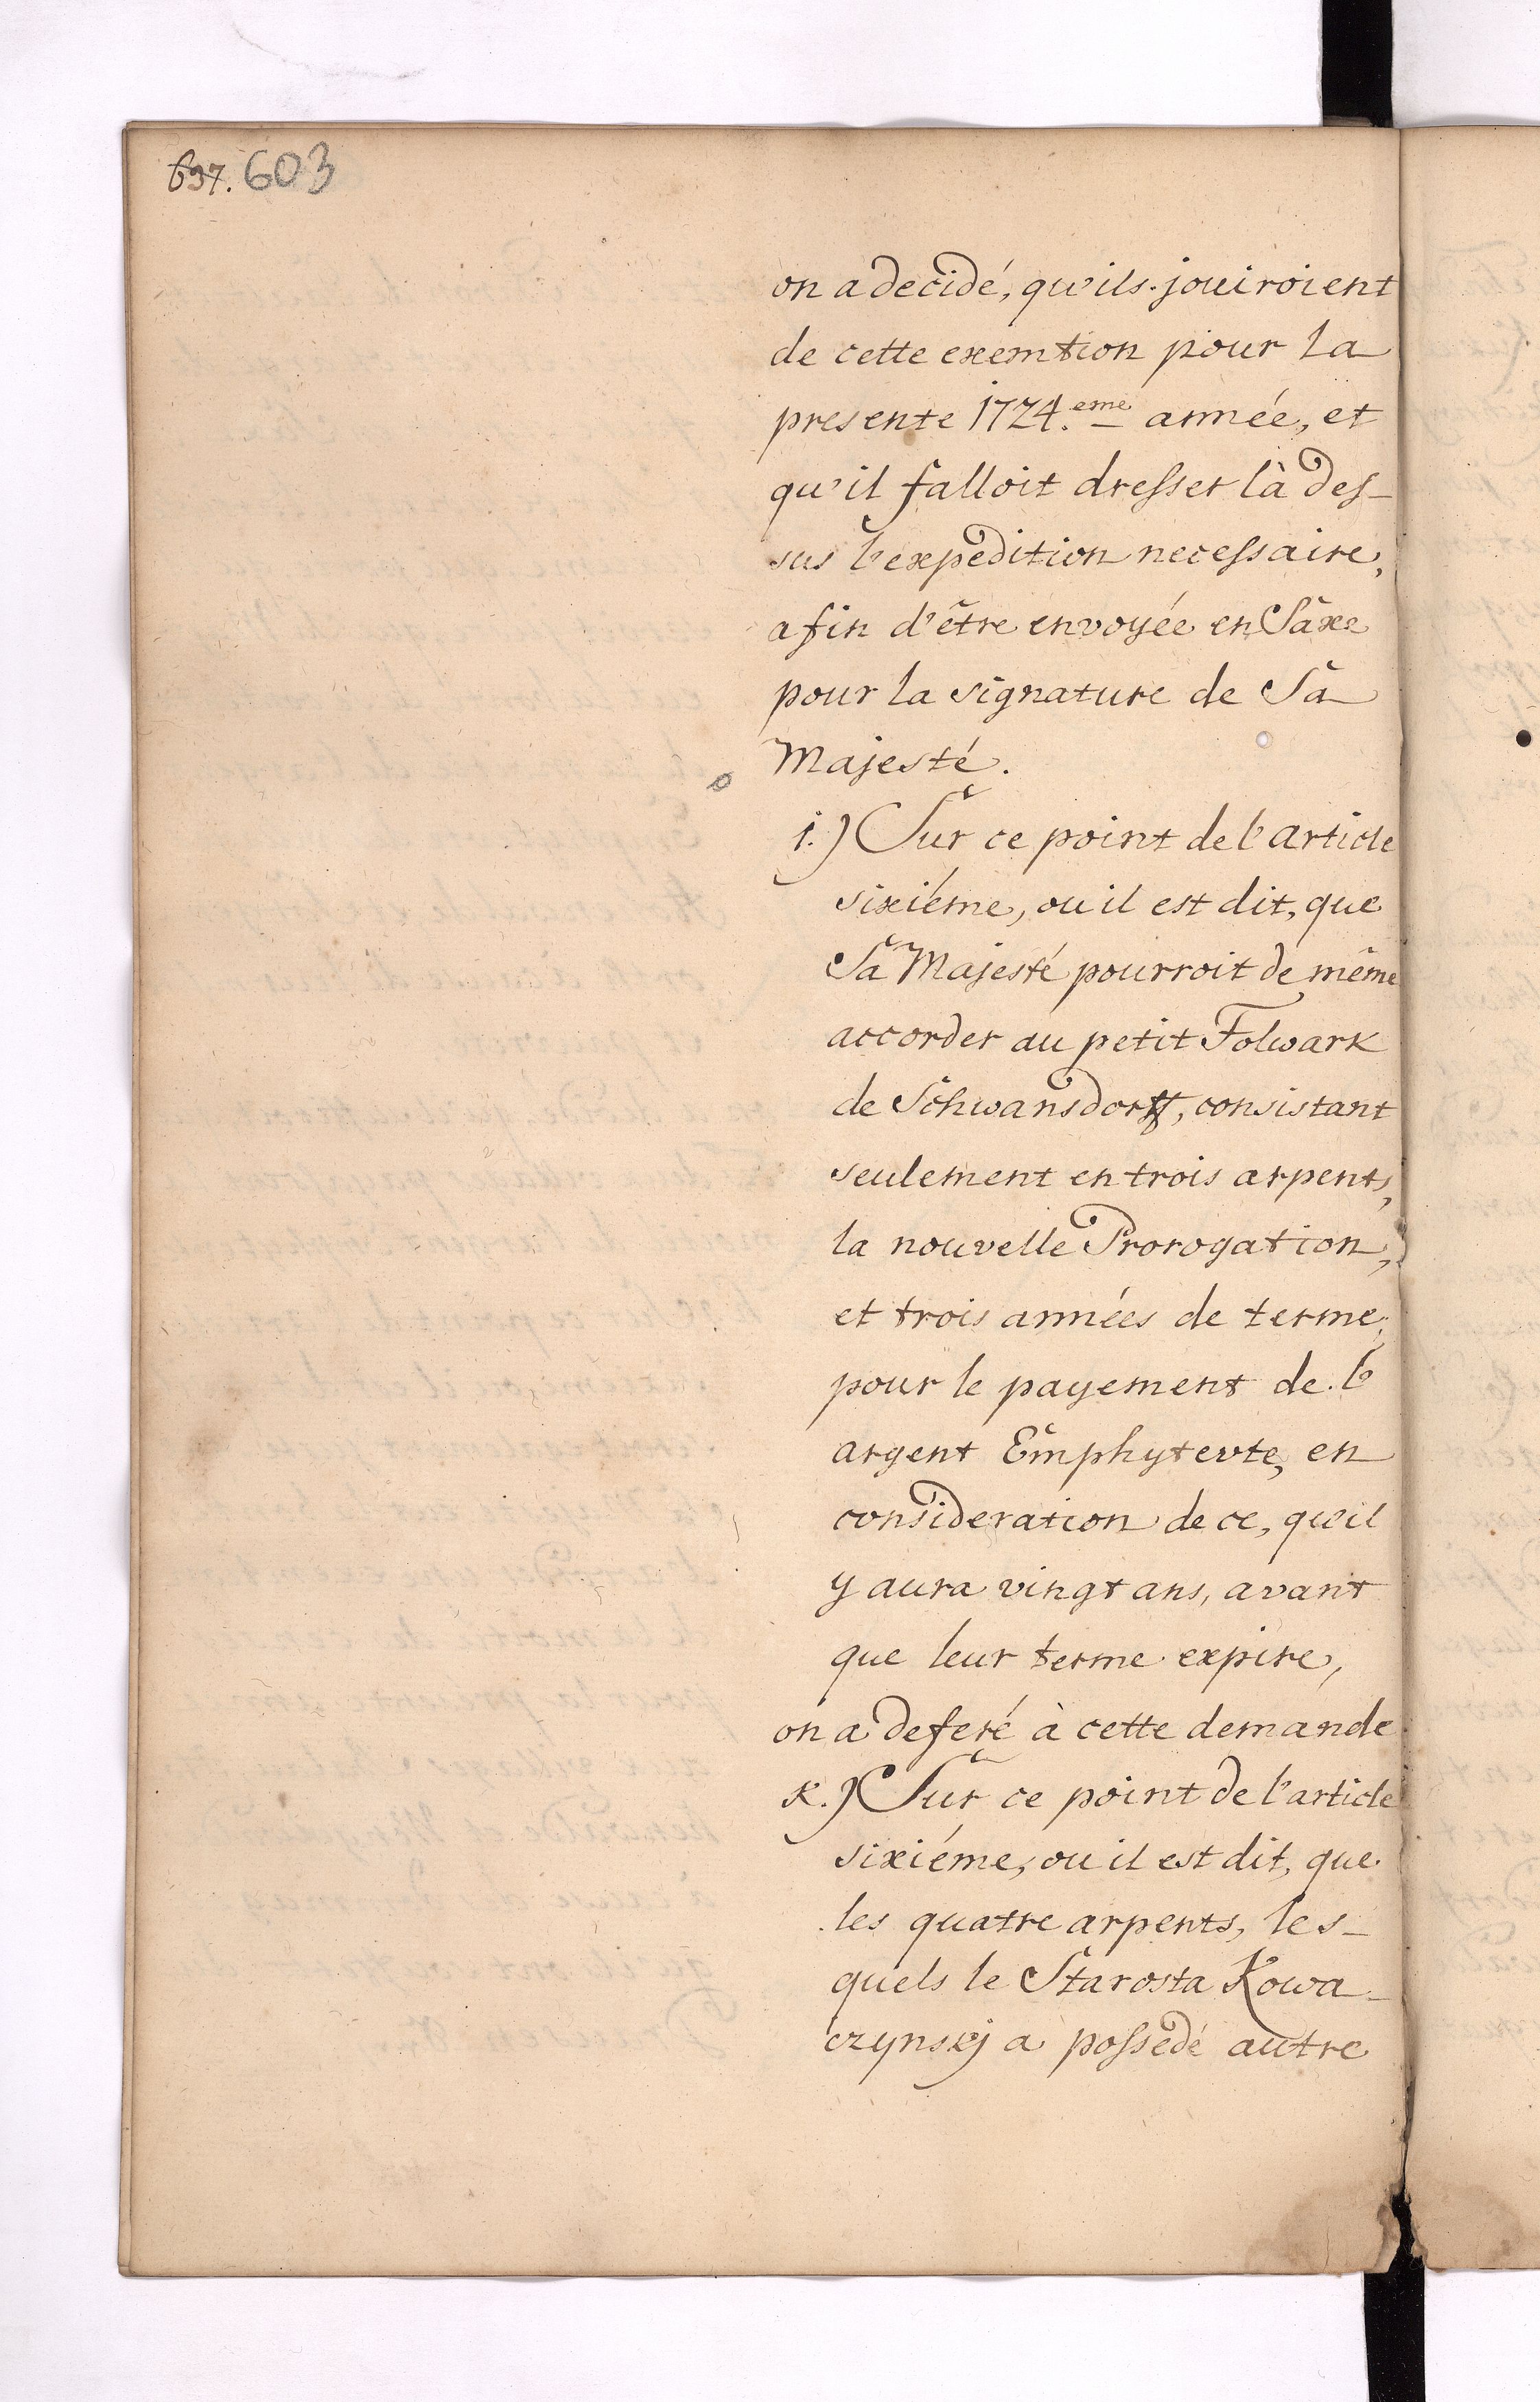 697. 603
on a decidé, qu'ils jouiroient
de cette exemtion pour la
presente 1724.eme année, et
qu'il falloit dresser là des-
sus l'expedition necessaire,
afin d'être envoyée en Saxe
pour la signature de Sa
Majesté.
i.) Sur ce point de l'article
sixiéme, ou il est dit, que
Sa Majesté pourroit de même
accorder au petit Folwark
de Schwansdorff, consistant
seulement en trois arpents,
la nouvelle Prorogation,
et trois années de terme,
pour le payement de l'
argent Emphytevte, en
consideration de ce, qu'il
y aura vingt ans, avant
que leur terme expire,
on a deferé à cette demande
K.) Sur ce point de l'article
sixiéme, ou il est dit, que
les quatre arpents, les-
quels le Starosta Kowa-
czynskj a possedé autre